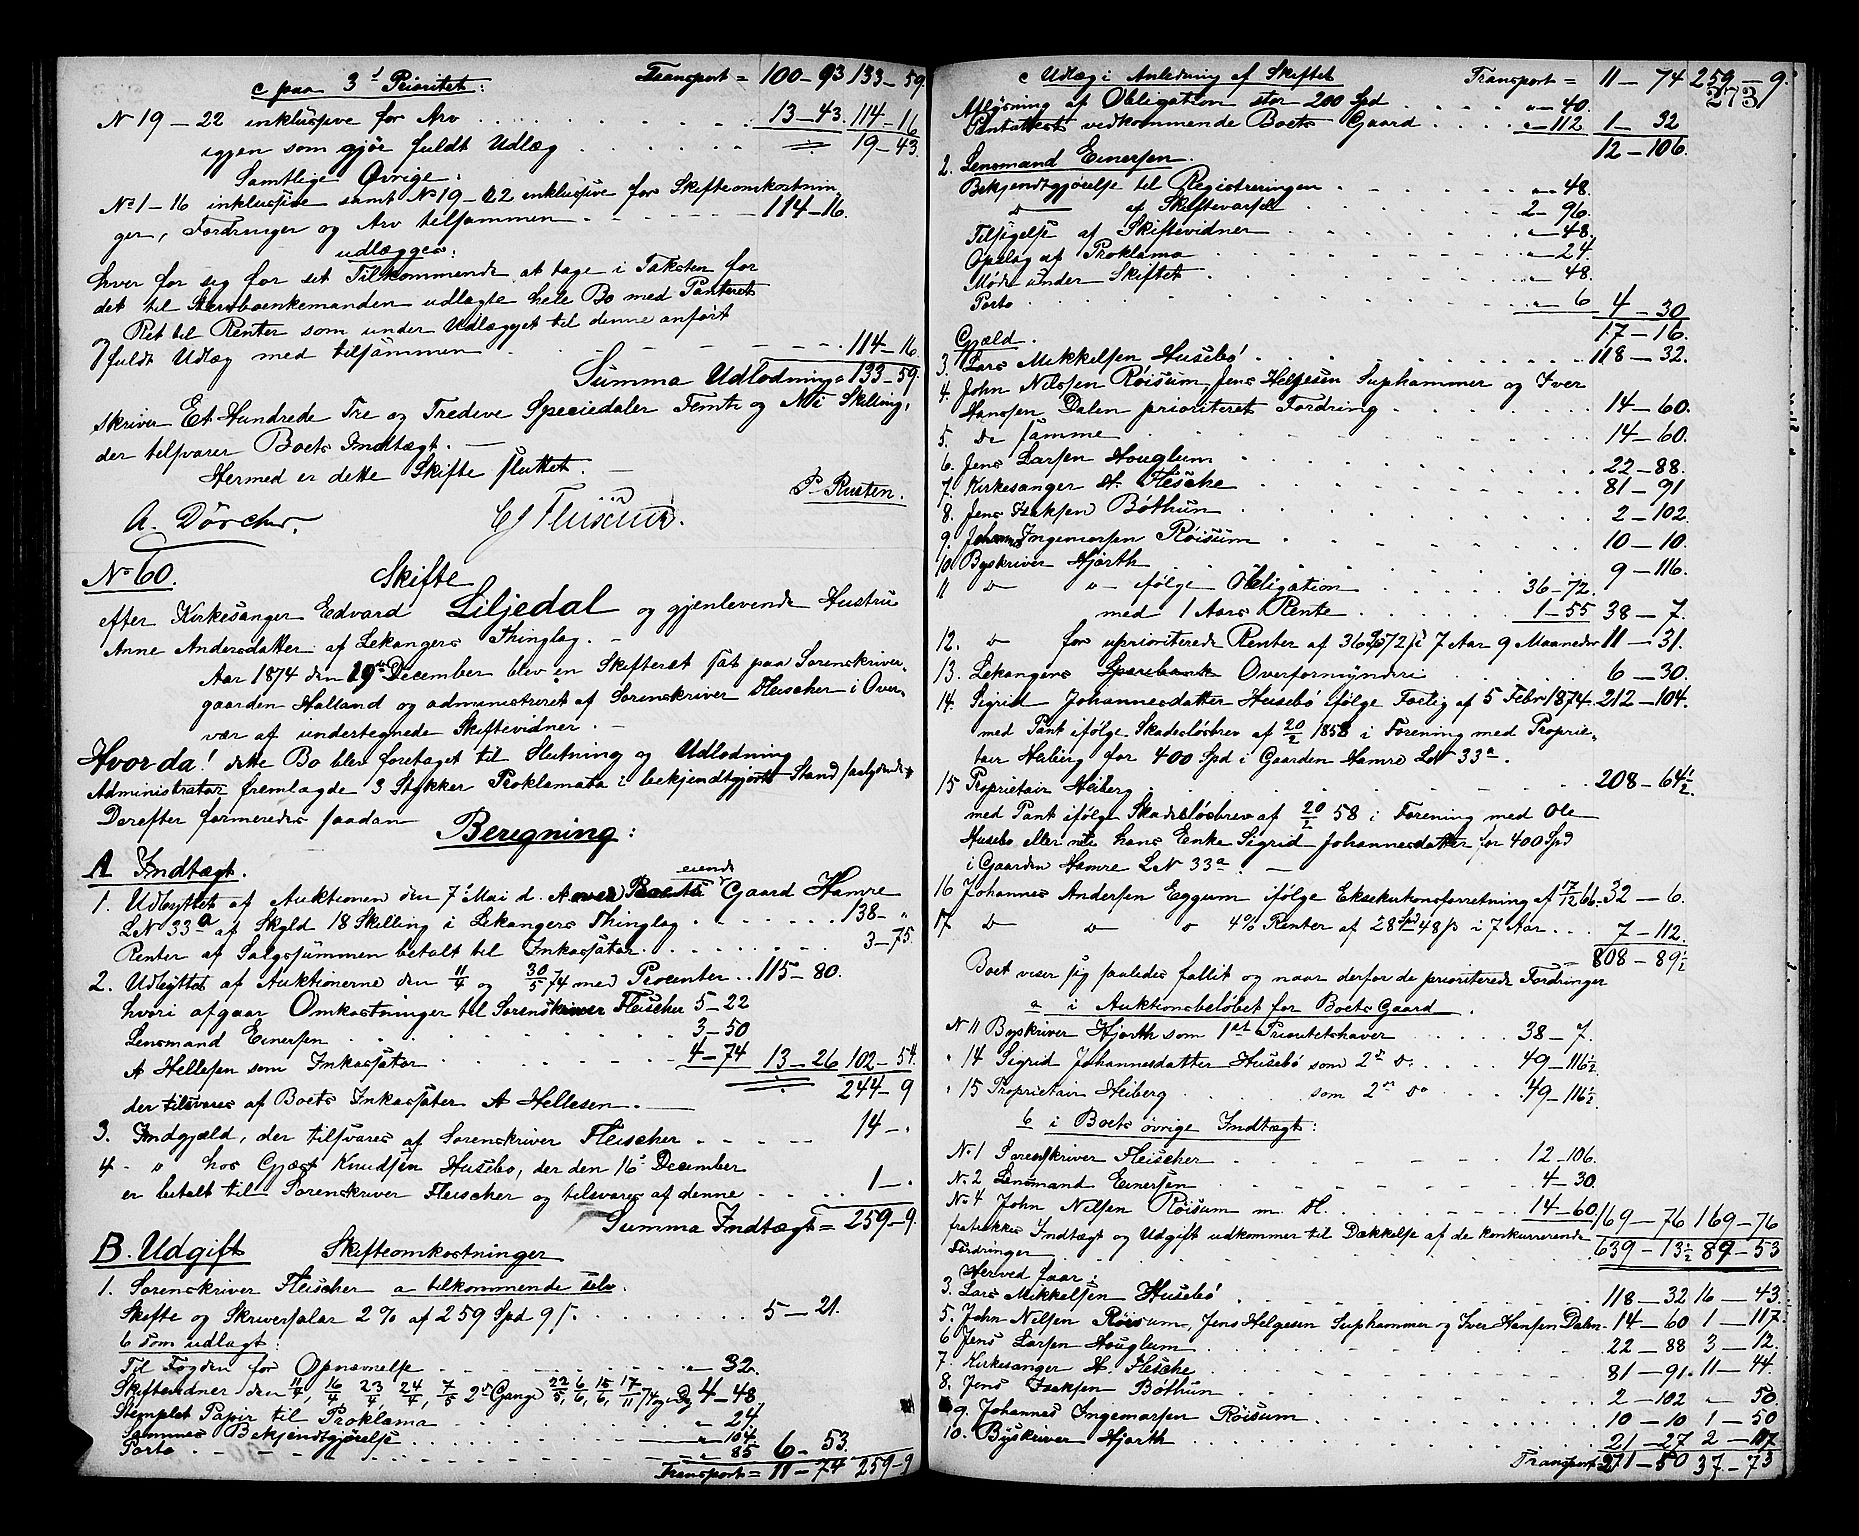 c paa 3die Prioritet: Transport = 100-93 133-59
No 19-22 inklusive for Arv 13-43 114-16
igjen som gjør fuldt Udlæg 19-43
Samtlige Øvrige:
No 1-16 inklusive samt No 19-22 inklusive for Skifteomkostnin-
ger, Fordringer og Arv tilsammen 114-16.
udlægges:
hver for sig for sit Tilkommende at tage i Taksten for
det til Stervboenkemanden udlagte hele Bo med Panteret
og Ret til Renter som under Udlægget til denne anført
fuldt Udlæg med tilsammen 114-16.
Summa Udlodning = 133-59
skriver Et Hundrede Tre og Tredeve Speciedaler Femti og Ni Skilling,
der tilsvarer Boets Indtægt. —
Hermed er dette Skifte sluttet. —
P. Rusten.
A. Dörcher. Fleischer.
No 60. Skifte
efter Kirkesanger Edvard Liljedal og gjenlevende Hustru
Anne Andersdatter af Lekangers Thinglag. —
Aar 1874 den 19de December blev en Skifteret sat paa Sorenskriver-
gaarden Halland og administreret af Sorenskriver Fleischer i Over-
vær af undertegnede Skiftevidner. —
Hvorda! dette Bo blev foretaget til Slutning og Udlodning
Administrator fremlagde 3 Stykker Proklamata i bekjendtgjort Stand saalydende
Derefter formeredes saadan
Beregning:
A Indtægt. eiende
1. Udbyttet af Auktionen den 7de Mai d. A over Boets Gaard Hamre
LNo 33a af Skyld 18 Skilling i Lekangers Thinglag 138- "
Renter af Salgssummen betalt til Inkassator 3-75.
2. Udbyttet af Auktionerne den 11/4 og 30/5 74 med Procenter 115-80.
hvori afgaar Omkostninger til Sorenskriver Fleischer 5-22
Lensmand Einersen 3-50
A Hellesen som Inkassator 4-74 13-26 102-54.
244-9
der tilsvares af Boets Inkassator A Hellesen. —
3. Indgjæld, der tilsvares af Sorenskriver Fleischer 14-.
4 - " hos Gjæst Knudsen Husebø, der den 16de December
er betalt til Sorenskriver Fleischer og tilsvares af denne 1-.
Summa Indtægt = 259-9.
B. Udgift Skifteomkostninger
1. Sorenskriver Fleischer a tilkommende selv.
Skifte og Skriversalær 2% af 259 Spd 9 ß. 5-21.
b som udlagt:
Til Fogden for Opnævnelse "-32.
Skiftevidner den 11/4, 16/4, 23/4, 24/4, 7/5 2de Gange 22/5, 6/6, 15/6, 17/11 74 og i Dag 4-48.
Stemplet Papir til Proklama "-24.
Sammes Bekjendtgjørelse "-104
Porto "-85 6-53.
Transport = 11-74 259-9
c Udlæg i Anledning af Skiftet Transport = 11-74 259-9.
273
Udløsning af Obligation stor 200 Spd "-40.
Pantattest vedkommende Boets Gaard "-112 1-32
12-106.
2. Lensmand Einersen.
Bekjendtgjørelse til Registreringen "-48.
do af Skiftevarsel 2-96.
Tilsigelse af Skiftevidner "-48.
Opslag af Proklama "-24.
Møde under Skiftet "-48.
Porto "-6 4-30
17-16.
Gjæld.
3. Lars Mikkelsen Husebø 118-32.
4. John Nilssen Røisum, Jens Helgesen Suphammer og Iver
Hanssen Dalen prioriteret Fordring 14-60.
5. De samme 14-60.
6. Jens Larsen Houglum 22-88.
7. Kirkesanger H. Flesche 81-91
8. Jens Isaksen Bøthun 2-102.
9. Johannes Ingemarsen Røisum 10-10.
10. Byskriver Hjorth 9-116.
11 do " ifølge Obligation 36-72.
med 1 Aars Rente 1-55 38-7.
12. do for uprioriterede Renter af 36 Spd 72 ß i 7 Aar 9 Maaneder 11-31.
13. Lekangers Sparebank Overformynderi 6-30.
14. Sigrid Johannesdatter Husebø ifølge Forlig af 5 Febr 1874 212-104.
med Pant ifølge Skadesløsbrev af 20/2 1858 i Forening med Proprie-
tair Heiberg for 400 Spd i Gaarden Hamre LNo 33a.
15 Proprietair Heiberg 208-64 1/2.
med Pant ifølge Skadesløsbrev af 20/2 58 i Forening med Ole
Husebø eller nu hans Enke Sigrid Johannesdatter for 400 Spd
i Gaarden Hamre LNo 33a. —
16 Johannes Andersen Eggum ifølge Eksekutionsforretning af 17/12 66. 32-6.
17. do do " 4% Renter af 28 Spd 48 ß i 7 Aar 7-112.
808-89 1/2
Boet viser sig saaledes fallit og naar derfor de prioriterede Fordringer
a i Auktionsbeløbet for Boets Gaard.
No 11 Byskriver Hjorth som 1ste Prioritetshaver 38-7.
" 14 Sigrid Johannesdatter Husebø som 2den do 49-116 1/2
" 15 Proprietair Heiberg som 2den do 49-116 1/2
b i Boets øvrige Indtægt:
No 1 Sorenskriver Fleischer 12-106.
No 2 Lensmand Einersen 4-30.
No 4 John Nilsen Røisum m. Fl. 14-60. 169-76 169-76
fratrækkes Indtægt og Udgift udkommer til Dækkelse af de konkurrerende
Fordringer 639-13 1/2 89-53
Herved faar:
3. Lars Mikkelsen Husebø 118-32 16-43.
5. John Nilsen Røisum, Jens Helgesen Suphammer og Iver Hansen Dalen 14-60 1-117.
6 Jens Larsen Houglum 22-88 3-12.
7. Kirkesanger H. Flesche 81-91. 11-44.
8. Jens Isaksen Bøthun 2-102 "-50.
9. Johannes Ingemarsen Røisum 10-10 1-50
10. Byskriver Hjorth 21-27 2-117
Transport = 271-50 37-73